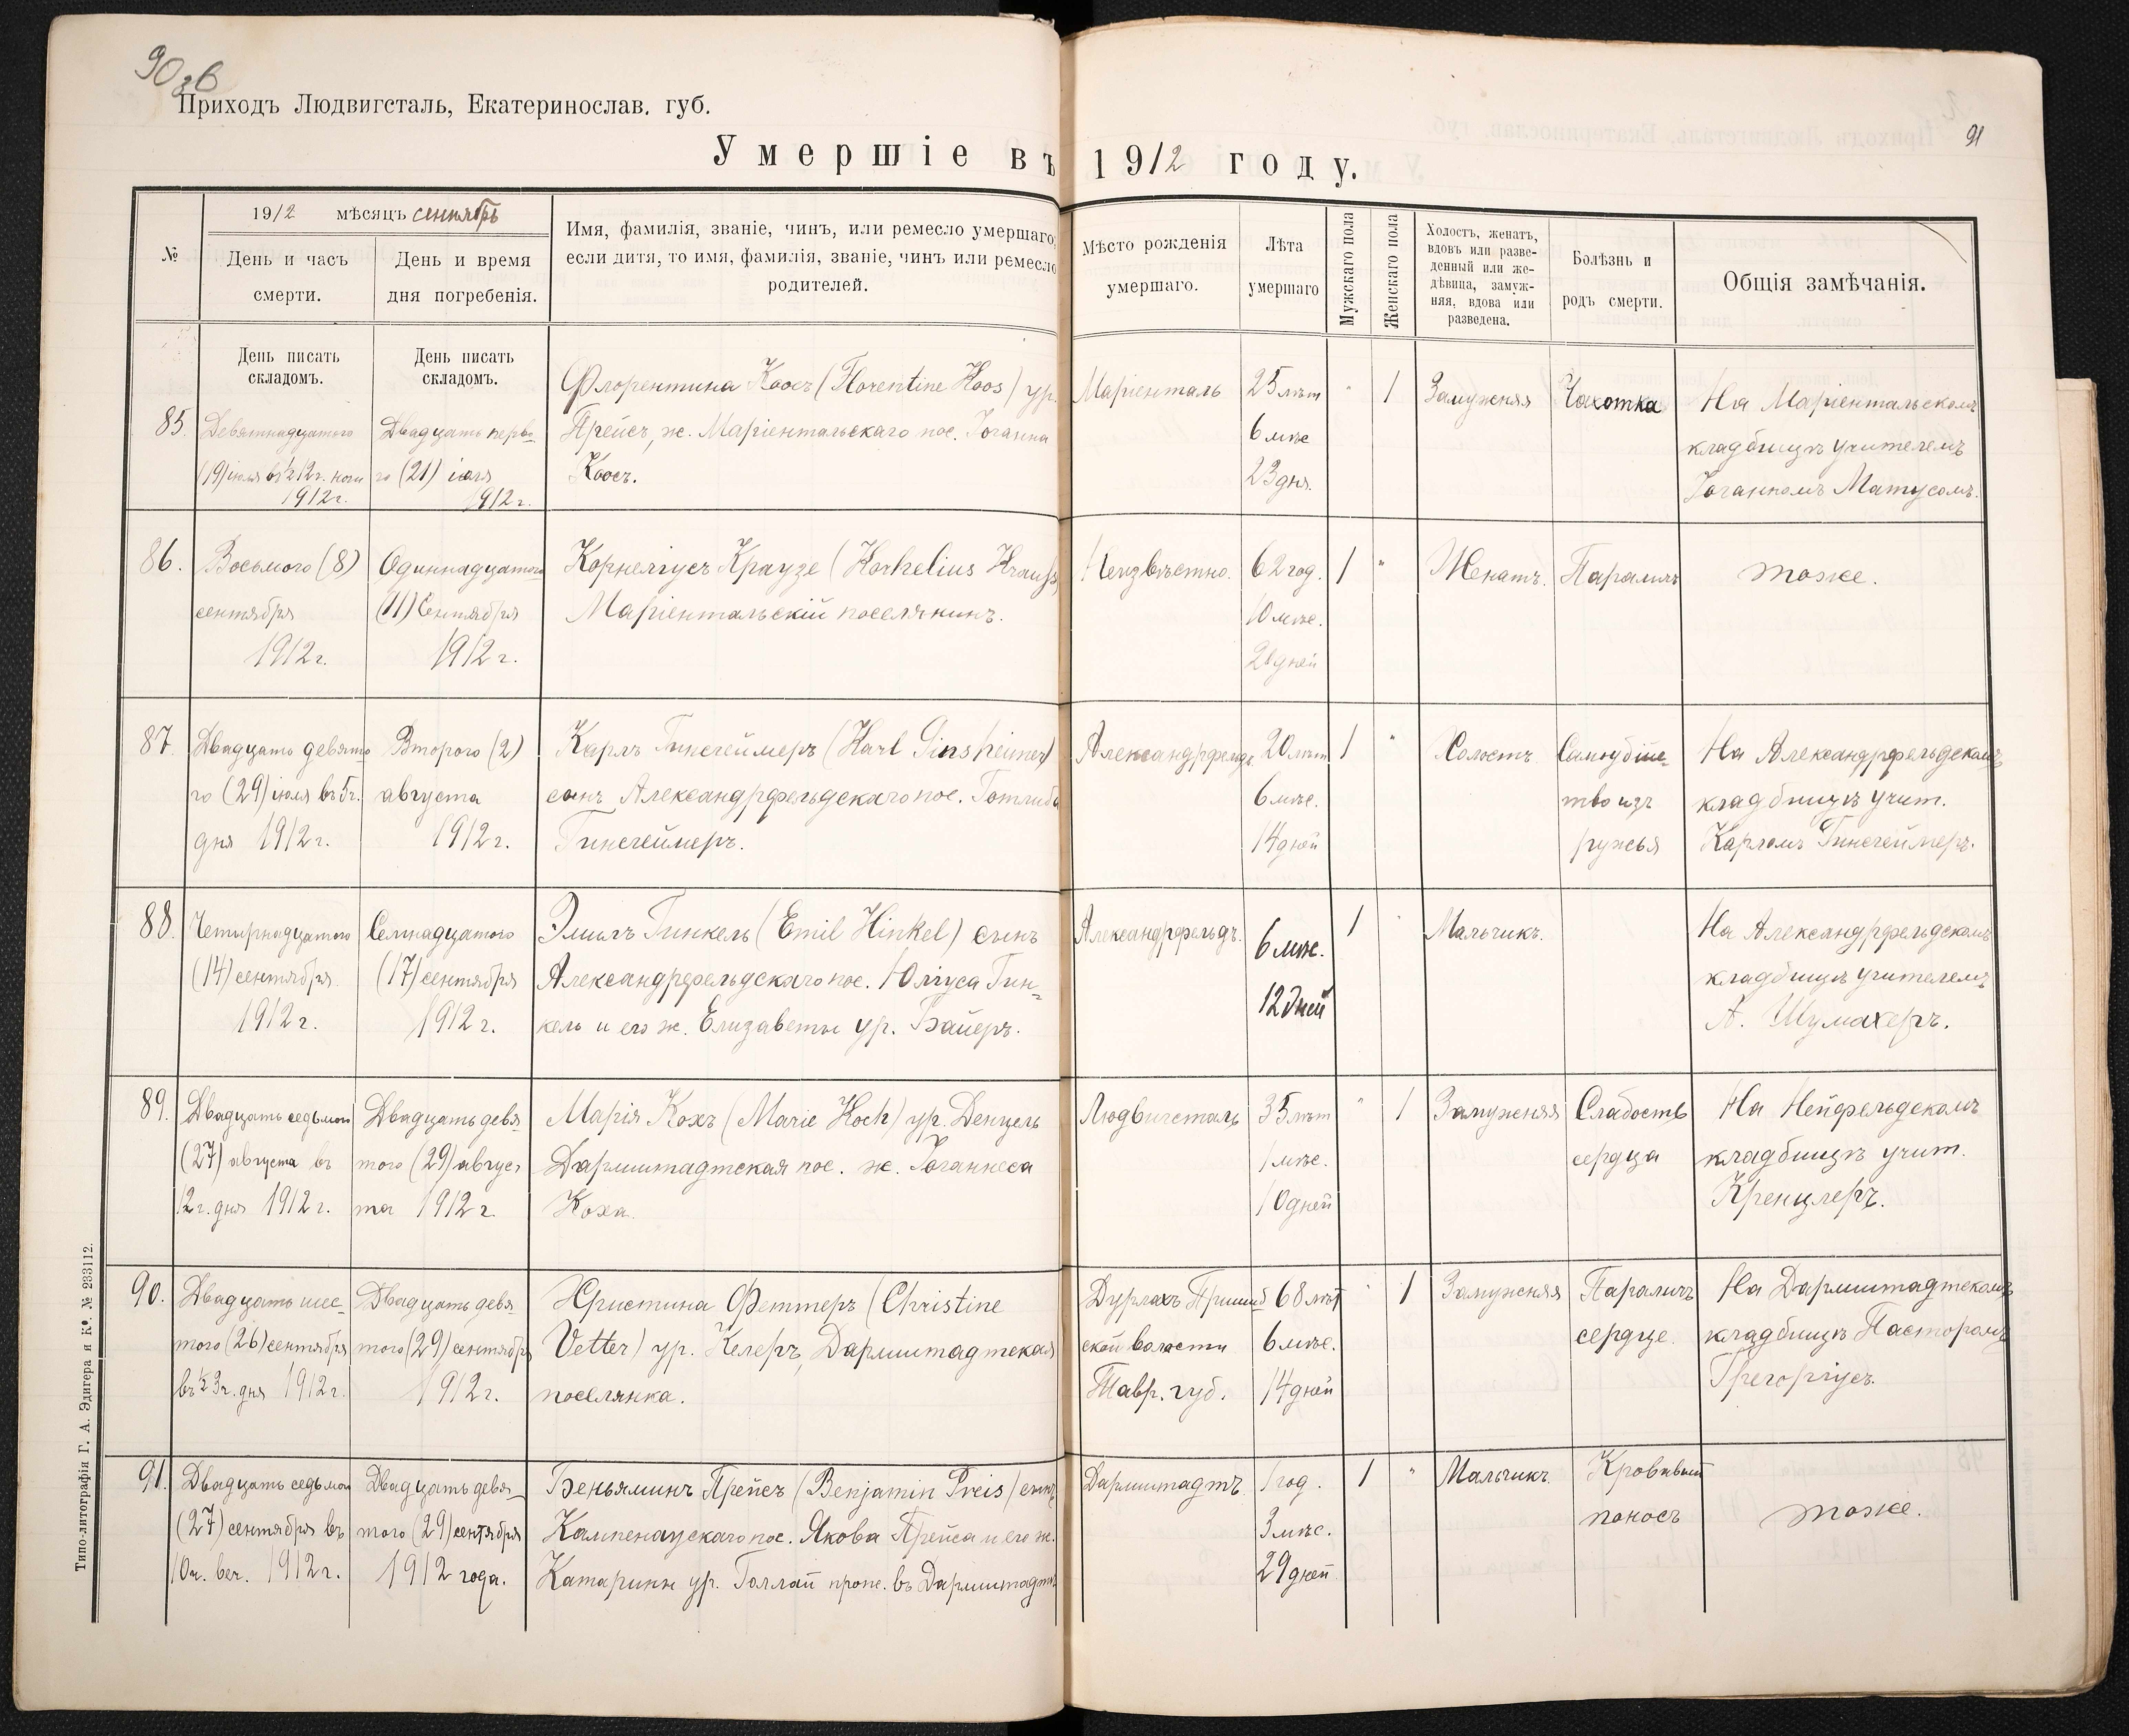 90 об
Приходъ Людвигсталь, Екатеринослав. губ.
91
Умершіе въ 1912 году.
№
1912 мѣсяцъ сентябрь
День и часъ
смерти.
День и время
дня погребенія.
Имя, фамилія, званіе, чинъ, или ремесло умершаго,
если дитя, то имя, фамилія, званіе, чинъ или ремесло
родителей.
Мѣсто рожденія
умершаго.
Лѣта
умершаго
Мужскаго пола
Женскаго пола
Холостъ, женатъ,
вдовъ или разве-
денный или же-
дѣвица, замуж-
няя, вдова или
разведена.
Болѣзнь и
родъ смерти.
Общія замѣчанія.
День писать
складомъ.
День писать
складомъ.
85.
Девятнадцатого
(19) іюля въ ½12ч. ночи
1912г.
Двадцать перво-
го (21) іюля
1912г.
Флорентина Коосъ (Florentine Koos) ур.
Прейсъ, ж. Маріентальскаго пос. Іоганна
Коосъ.
Маріенталь
25 лѣт
6 мѣс
23 дня.
" 1
Замужняя
Чахотка
На Маріентальскомъ
кладбищѣ учителемъ
Іоганномъ Матусомъ.
86.
Восьмого (8)
сентября
1912г.
Одиннадцатого
(11) Сентября
1912г.
Корнеліусъ Краузе (Kornelius Krauße
Маріентальскій поселянинъ.
Неизвѣстно.
62 год.
10 мѣс.
21 дней
1 "
Женатъ.
Параличъ
тоже.
87.
Двадцать девято
го (29) іюля въ 5ч.
дня 1912г.
Второго (2)
августа
1912г.
Карлъ Гинсгеймеръ (Karl Ginsheimer)
сынъ Александрфельдскаго пос. Готлиба
Гинсгеймеръ.
Александрфельдъ
20 лѣт
6 мѣс.
14 дней
1 "
Холостъ
Самоубійс-
тво изъ
ружья
На Александрфельдскомъ
кладбищѣ учит.
Карломъ Гинсгеймеръ.
88.
Четырнадцатого
(14) сентября
1912г.
Семнадцатого
(17) сентября
1912г.
Эмиль Гинкель (Emil Hinkel) сынъ
Александрфельдскаго пос. Юліуса Гин-
кель и его ж. Елизаветы ур. Байеръ.
Александрфельдъ.
6 мѣс.
12 дней
1
Мальчикъ.
На Александрфельдскомъ
кладбищѣ учителемъ
А. Шумахеръ.
89.
Двадцать седьмого
(27) августа въ
12ч. дня 1912г.
Двадцать девя-
того (29) авгус-
та 1912г.
Марія Кохъ (Marie Koch) ур. Денцель
Дармштадтская пос. ж. Іоганнеса
Коха.
Людвигсталь
35 лѣт
1 мѣс.
10 дней
" 1
Замужняя
Слабость
сердца
На Нейфельдскомъ
кладбищѣ учит.
Кренцлеръ.
90.
Двадцать шес-
того (26) сентября
въ ½3ч. дня 1912г.
Двадцать девя-
того (29) сентября
1912г.
Христина Феттеръ (Christine
Vetter) ур. Келеръ, Дармштадтская
поселянка.
Дурлахъ Пришиб
ской волости
Тавр. губ.
68 лѣт
6 мѣс.
14 дней
" 1
Замужняя
Параличъ
сердце.
На Дармштадтскомъ
кладбищѣ Пасторомъ
Грегоріусъ.
91.
Двадцать седьмого
(27) сентября въ
10ч. веч. 1912г.
Двадцать девя-
того (29) сентября
1912 года.
Беньяминъ Прейсъ (Benjamin Preis) сынъ
Кампенаускаго пос. Якова Прейса и его ж.
Катарины ур. Голлай прож. въ Дармштадтѣ
Дармштадтъ.
1 год.
3 мѣс.
29 дней
1 "
Мальчикъ.
Кровавый
поносъ
тоже.
Типо-литографія Г. А. Эдигера и Ко. № 233112.